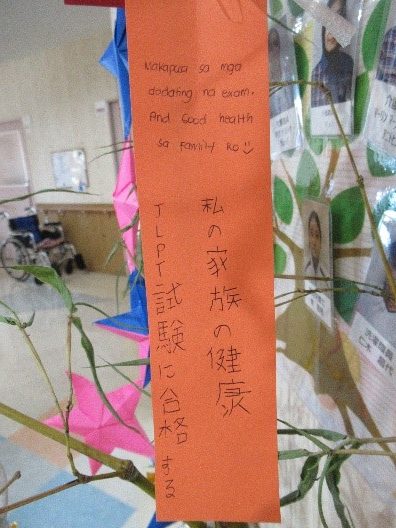 Makapasa sa mga
dadating na exam.
And Good health
sa family ko
私の家族の健康
JLPT試験に合格する